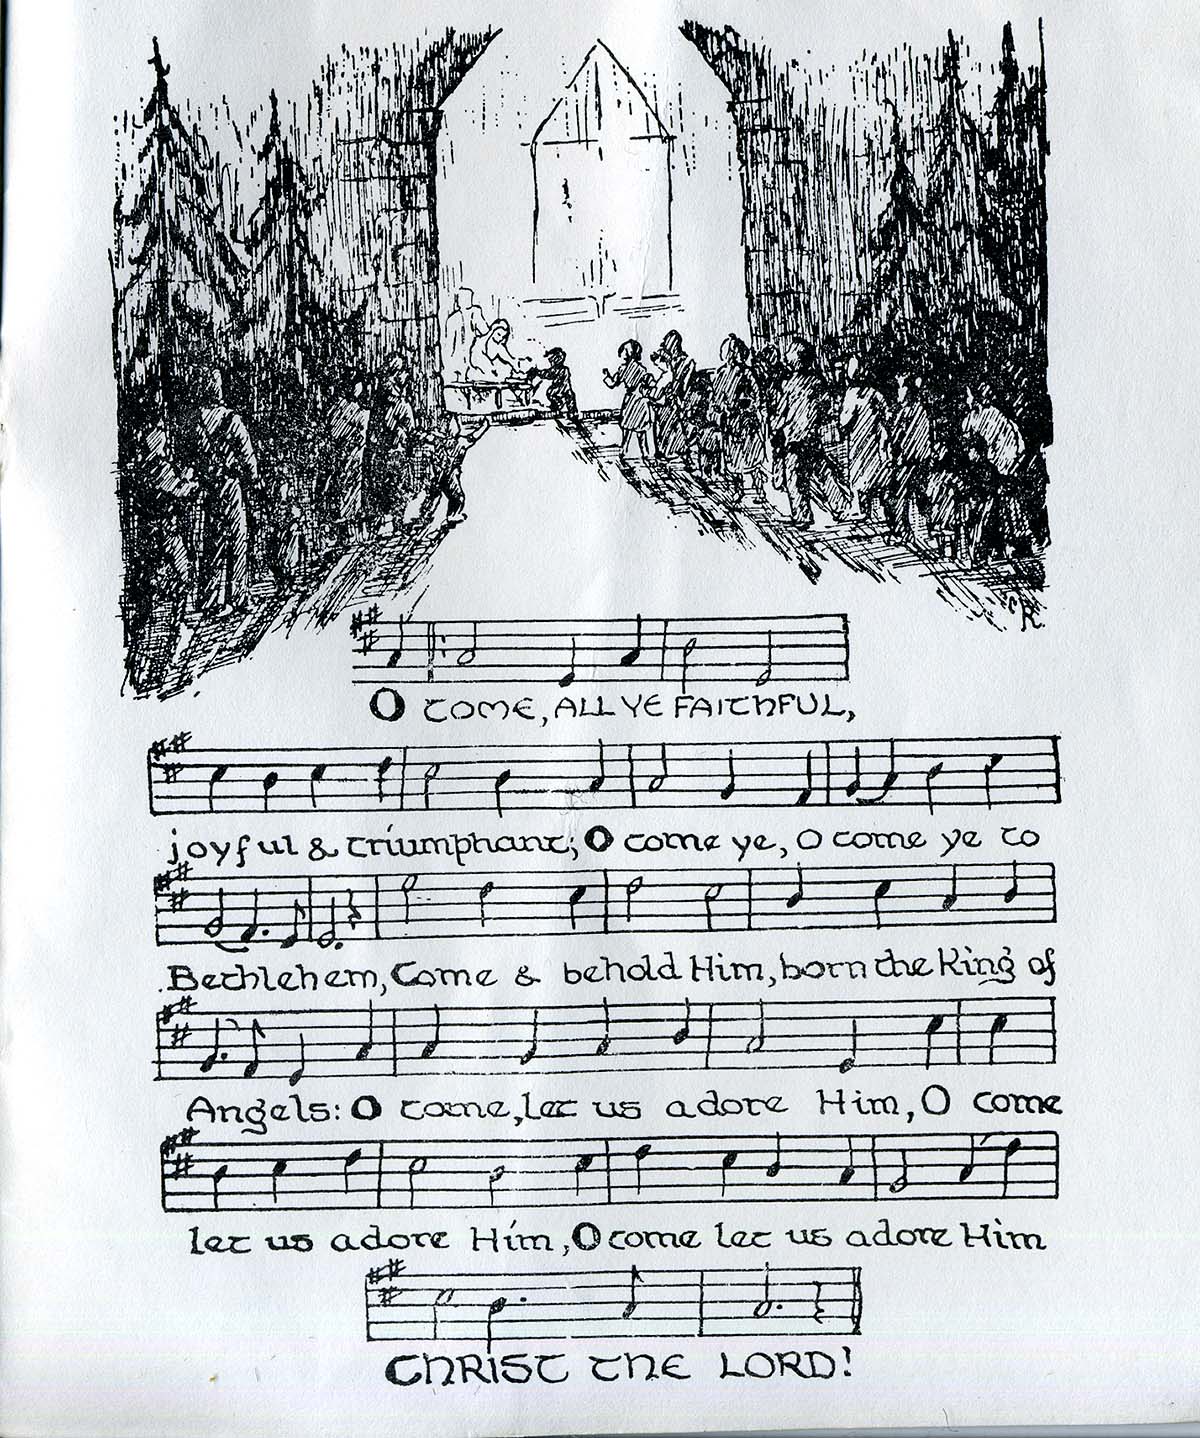 O COME, ALL YE FAITHFUL,
joyful & triumphant; O come ye, O come ye to
Bethlehem, Come & behold Him, born the King of
Angels: O come, let us adore Him, O come
let us adore Him, O come let us adore Him
CHRIST THE LORD!